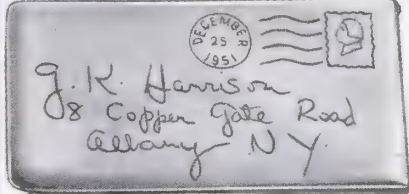 DECEMBER
25
1951
G. K. Harrison
8 Copper Gate Road
Albany N Y.